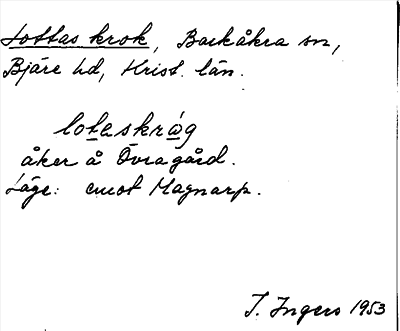 Lottas krok, Barkåkra sn,
Bjäre hd, Krist. län.
loteskråg
åker å Övragård.
Läge: emot Magnarp.
I. Ingers 1953